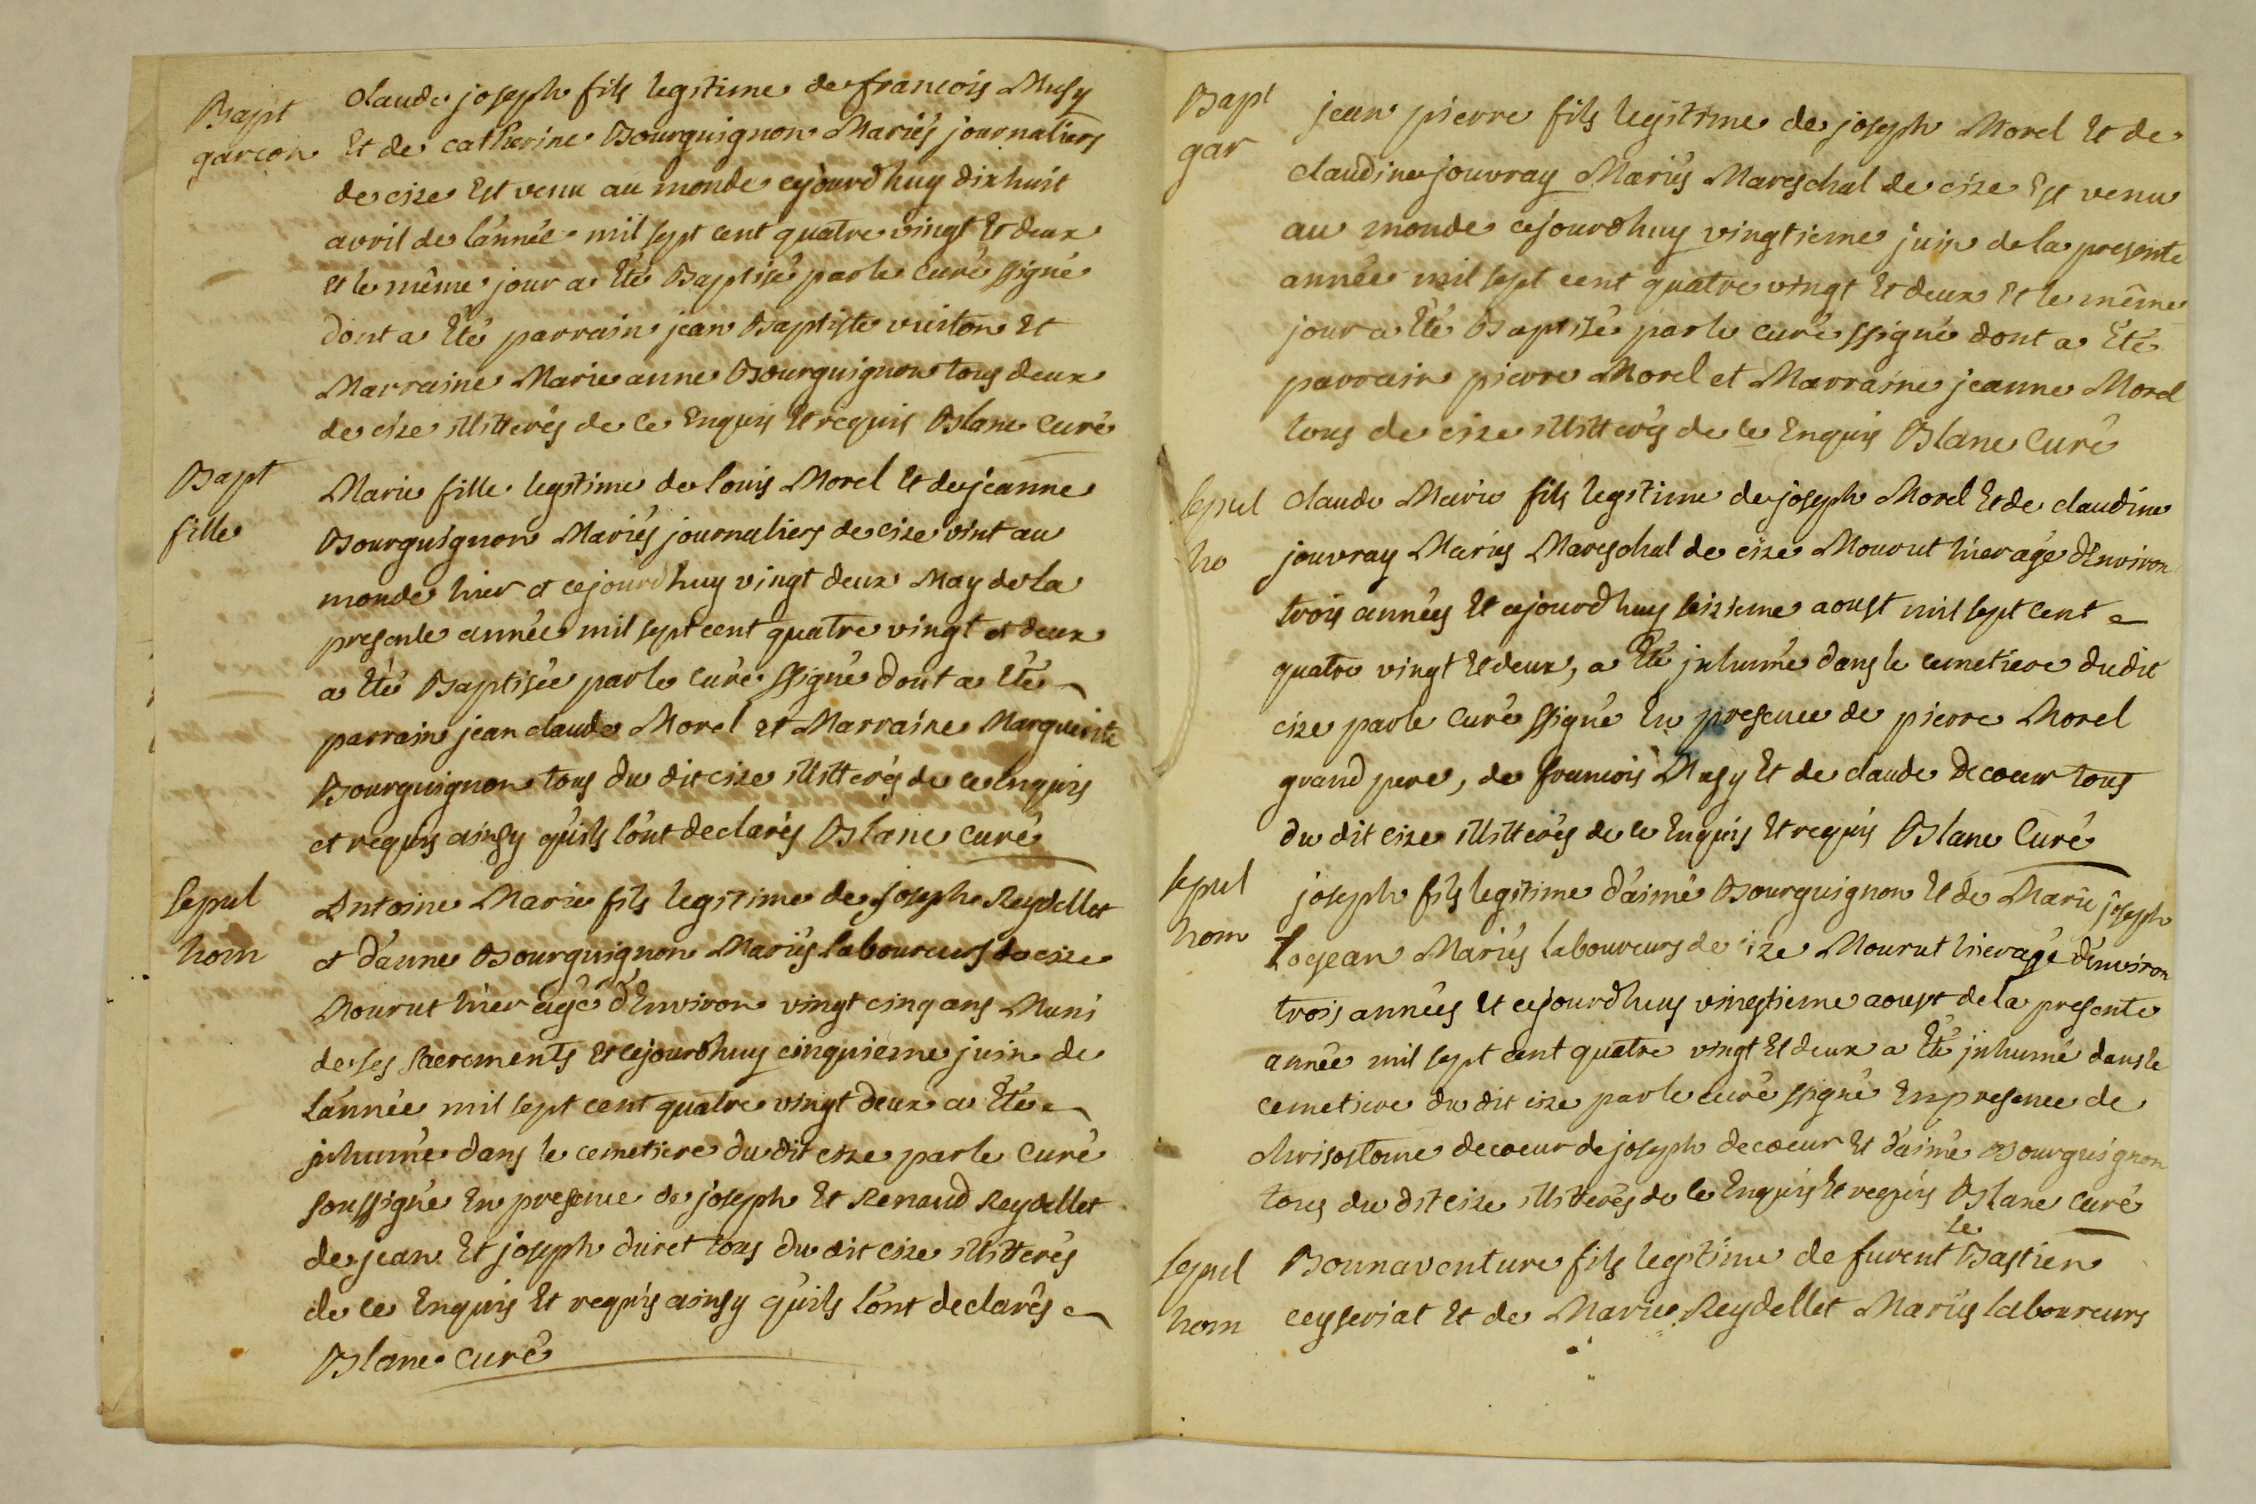 Bapt
garcon
Claude joseph fils legitime de francois Musy
Et de catherine Bourguignon Mariés journaliers
de cize Est venu au monde cejourdhuy dixhuit
avril de lannée mil sept cent quatre vingt Et deux
et le même jour a Eté Baptisé par le curé ssigné
dont a Eté parrain jean Baptiste vuiton Et
Marraine Marie anne Bourguignon tous deux
de cize illitterés de ce Enquis Et requis Blanc curé
Bapt
fille
Marie fille legitime de louis Morel Et de jeanne
Bourguignon Mariés journaliers de cize vint au
monde hier et cejourdhuy vingt deux May de la
presente année mil sept cent quatre vingt et deux
a Eté Baptisée par le curé ssigné dont a Eté
parrain jean claude Morel et Marraine Marguerite
Bourguignon tous du dit cize illitterés de ce enquis
et requis ainsy quils lont declarés Blanc curé
sepul
hom
Antoine Marie fils legitime de joseph Reydellet
et danne Bourguignon Mariés laboureurs de cize
Mourut hier agé dEnviron vingt cinq ans Muni
de ses sacrements et cejourdhuy cinquieme juin de
lannée mil sept cent quatre vingt deux a Eté
jnhumé dans le cemetiere du dit cize par le curé
soussigné En presence de joseph Et Renaud Reydellet
de jean Et joseph duret tous du dit cize illitterés
de ce Enquis Et requis ainsy quils lont declarés
Blanc curé
Bapt
gar
jean pierre fils legitime de joseph Morel Et de
claudine jouvray Mariés Mareschal de cize Est venu
au monde cejourdhuy vingtieme juin de la presente
année mil sept cent quatre vingt Et deux Et le même
jour a Eté Baptisé par le curé ssigné dont a Eté
parrain pierre Morel et Marraine jeanne Morel
tous de cize illitterés de ce Enquis Blanc Curé
sepul
ho
claude Marie fils legitime de joseph Morel Et de claudine
jouvray Mariés Mareschal de cize Mourut hier agé dEnviron
trois années Et cejourdhuy seizieme aoust mil sept cent
quatre vingt Et deux, a Eté jnhumé dans le cemetiere du dit
cize par le curé ssigné En presence de pierre Morel
grand pere, de francois Musy Et de claude Decoeur tous
du dit cize illitterés de ce Enquis Et requis Blanc Curé
sepul
hom
joseph fils legitime daimé Bourguignon Et de Marie joseph
Logean Mariés laboureurs de cize Mourut hier agé denviron
trois années Et cejourdhuy vingtieme aoust de la presente
année mil sept cent quatre vingt Et deux a Eté jnhumé dans le
cemetiere du dit cize par le curé ssigné En presence de
chrisostome decoeur de joseph decoeur Et daimé Bourguignon
tous du dit cize illitterés de ce Enquis Et requis Blanc curé
sepul
hom
Bonnaventure fils legitime de furent le Bastien
ceyseriat Et de Marie Reydellet Mariés laboureurs